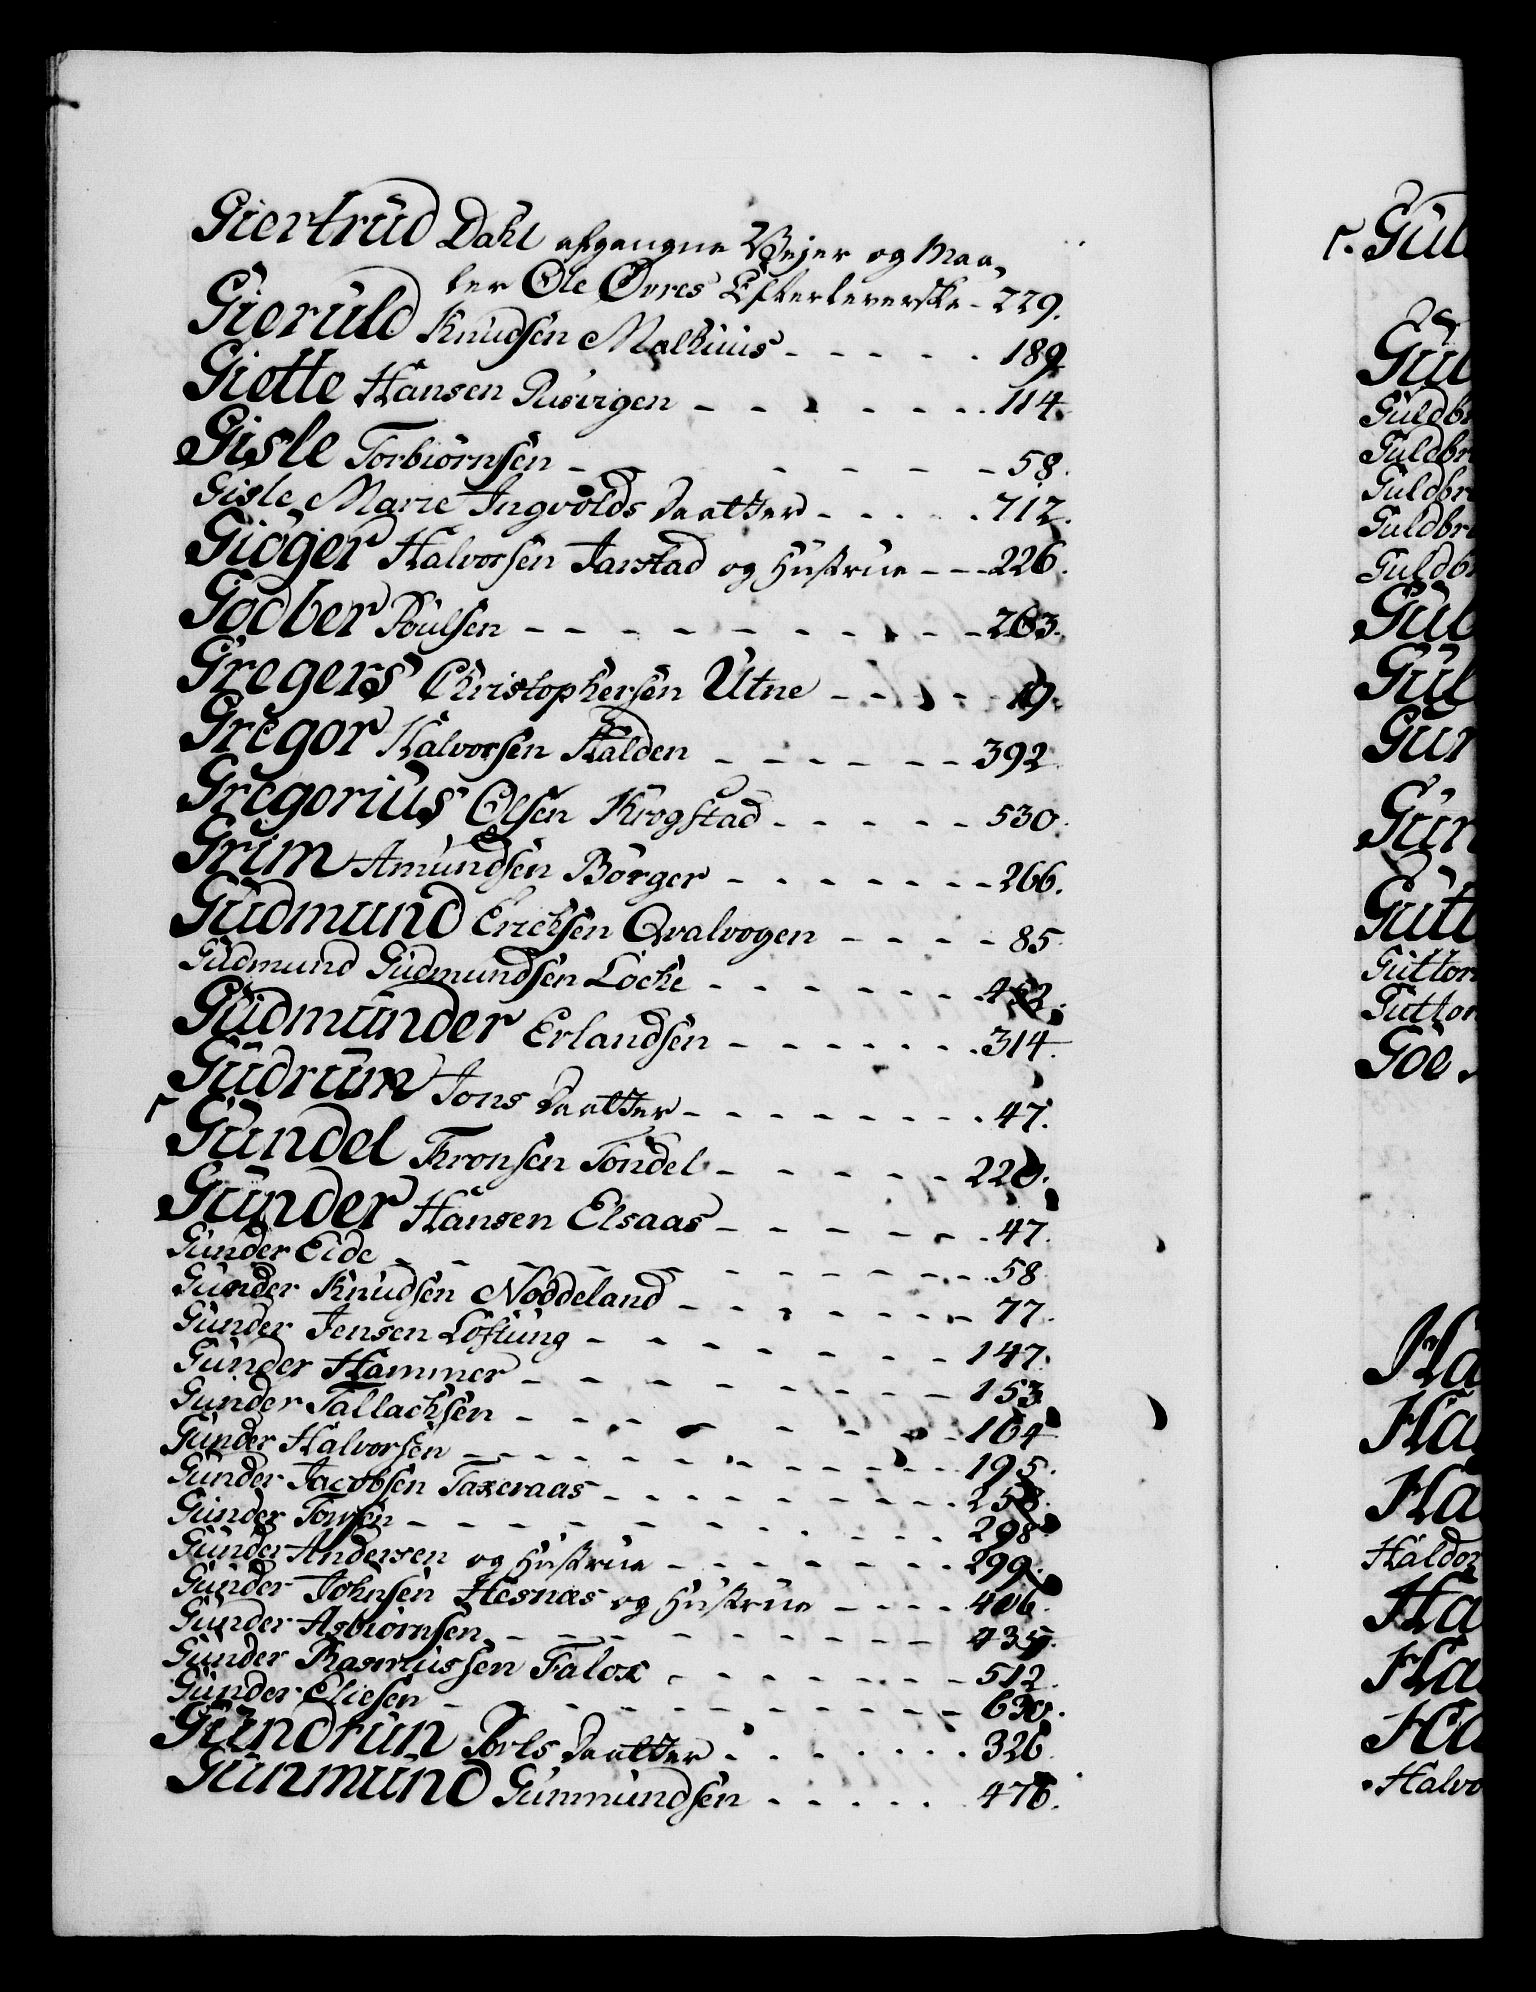 Giertrud Dahl afgangne Vejer og Maa,
ler Ole Øvres Efterleverske - 229.
Gieruld Knudsen Malhuus - - - - - 189
Giotte Hansen Rusvigen - - - - - - - 114.
Gisle Torbiörnsen - - - - - - - 58.
Gisle Marie Ingvolds Daatter - - - - - 712.
Gioger Halvorsen Jarstad og Hustrue - - - 226.
Godber Poulsen - - - - - - - - - - - 263.
Gregers Christophersen Utne - - - - - 19.
Gregor Halvorsen Halden - - - - - - 392.
Gregorius Olsen Krogstad - - - - - 530.
Grim Amundsen Börger - - - - - - - 266.
Gudmund Erichsen Qvalvogen - - - - 85.
Gudmund Gudmundsen Löcke - - - - - - -
Gudmunder Erlandsen - - - - - - - 314.
Gudrum Jons Daatter - - - - - - - - 47.
Gundel Thronsen Tondel - - - - - - 220.
Gunder Hansen Elsaas - - - - - - - 47.
Gunder Eide - - - - - - - - - - - 58
Gunder Knudsen Noddeland - - - - - - - 77.
Gunder Jensen Löftung - - - - - - - 147.
Gunder Hammer - - - - - - - - - 153
Gunder Tallachsen - - - - - - - - - 164
Gunder Halvorsen - - - - - - - - - - - 195.
Gunder Jacobsen Taxeraas - - - - - - - - - 258.
Gunder Tovsen - - - - - - - - - - - 298
Gunder Andersen og Hustrue - - - - - - - 299.
Gunder Johnsen Hesnæs og Hustrue - - - - 406.
Gunder Asbiörnsen - - - - - - - - - 435.
Gunder Rasmussen Falox - - - - - - - 512.
Gunder Eliesen - - - - - - - - - - 630.
Gundrun Porls Daatter - - - - - - - 326.
Gunmund Gunmundsen - - - - - 476.
Gul
Gul
Guldbr
Guldbr
Guldbr
Guldbr
Guldb
Gul
Gul
Gur
Gun
Gutt
Guttor
Guttor
Goe
Ha
Ha
Ha
Haldor
Ha
Ha
Ha
Halvo